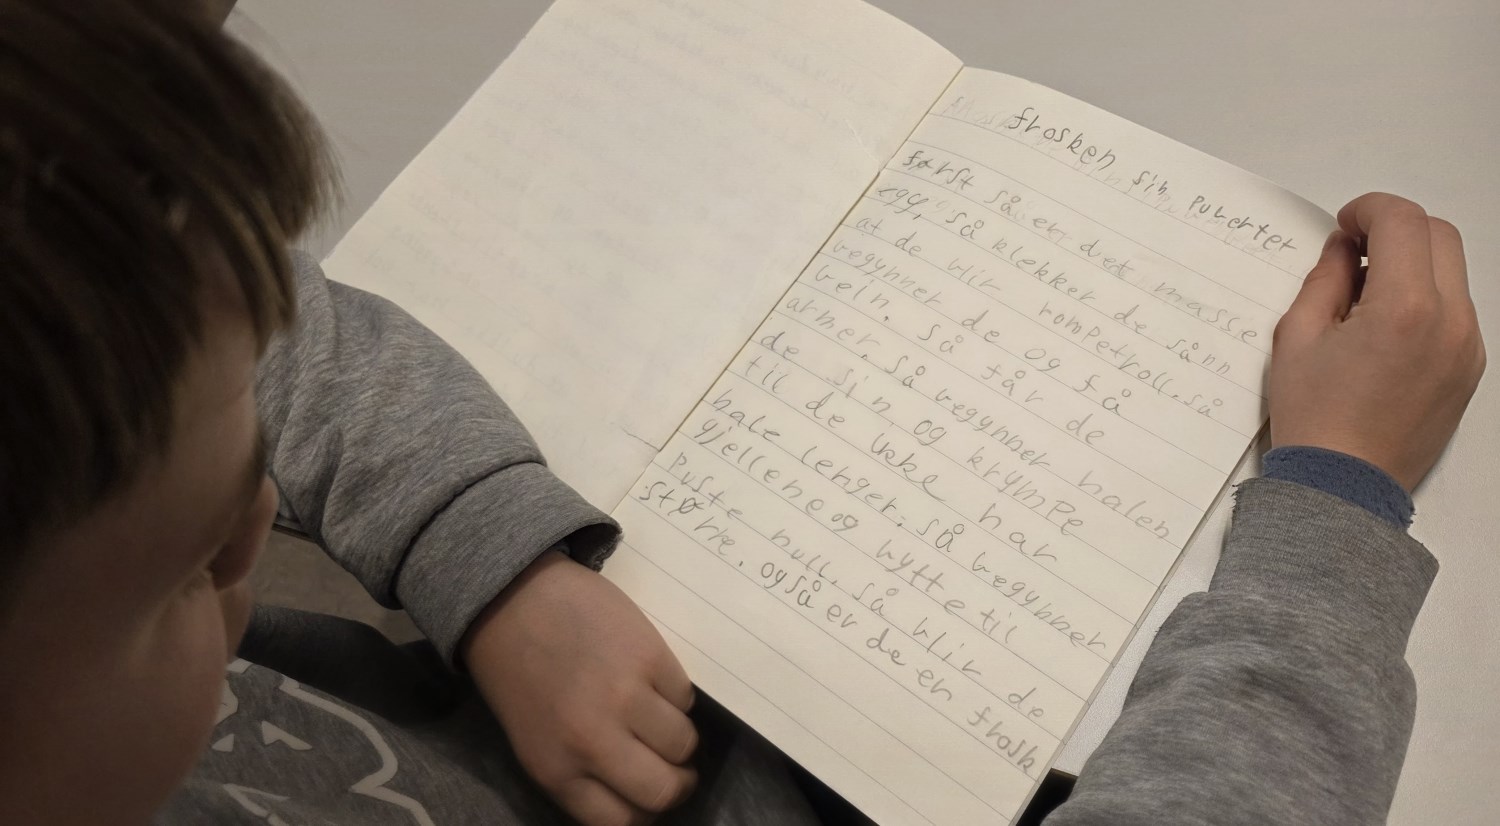 frosken sin pubertet
først så er det masse
egg, så klekker de sånn
at de blir rompetroll. så
begynner de og få
bein. så får de
armer. så begynner halen
de sin og krympe
til de ikke har
hale lenger. så begynner
gjellene og bytte til
puste hull. så blir de
større. også er de en frosk